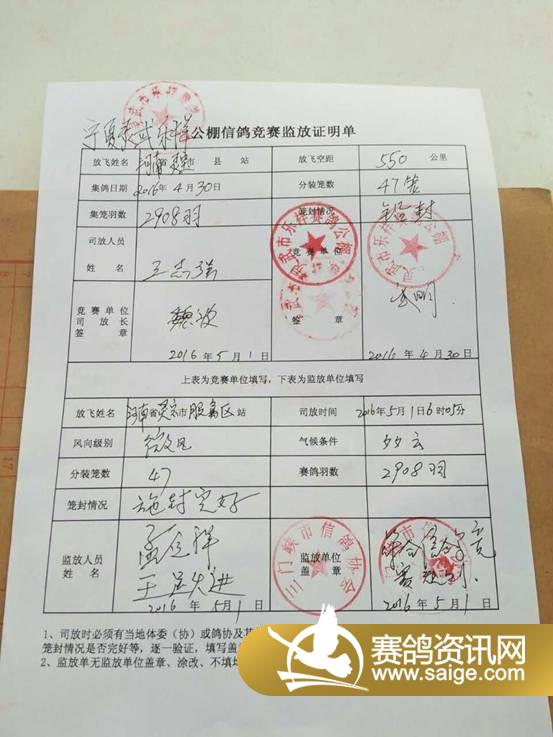 宁夏灵武乐祥公棚信鸽竞赛监放证明单
放飞姓名 河南 省 市 县 站 放飞空距 550 公里
集鸽日期 2016年4月30日 分装笼数 47笼
集笼羽数 2908羽 笼封情况 铅封
司放人员
姓 名 王志强 竞 赛 单 位
灵武市乐祥赛鸽公棚
竞赛单位
司放长
签 章 签 章
2016年5月1日 2016年4月30日
上表为竞赛单位填写,下表为监放单位填写
放飞姓名 河南省灵宝市服务区站 司放时间 2016年5月1日6时05分
风向级别 微风 气候条件 多云
分装笼数 47 赛鸽羽数 2908羽
笼封情况 施封完好
监放人员
姓 名 监放单位
盖 章
三门峡市信鸽协会
符合信鸽竞
赛规则.
2016年5月1日 2016年5月1日
1、司放时必须有当地体委(协)或鸽协及其
笼封情况是否完好等,逐一验证,填写盖
2、监放单无监放单位盖章、涂改、不填
赛鸽资讯网
www.saige.com